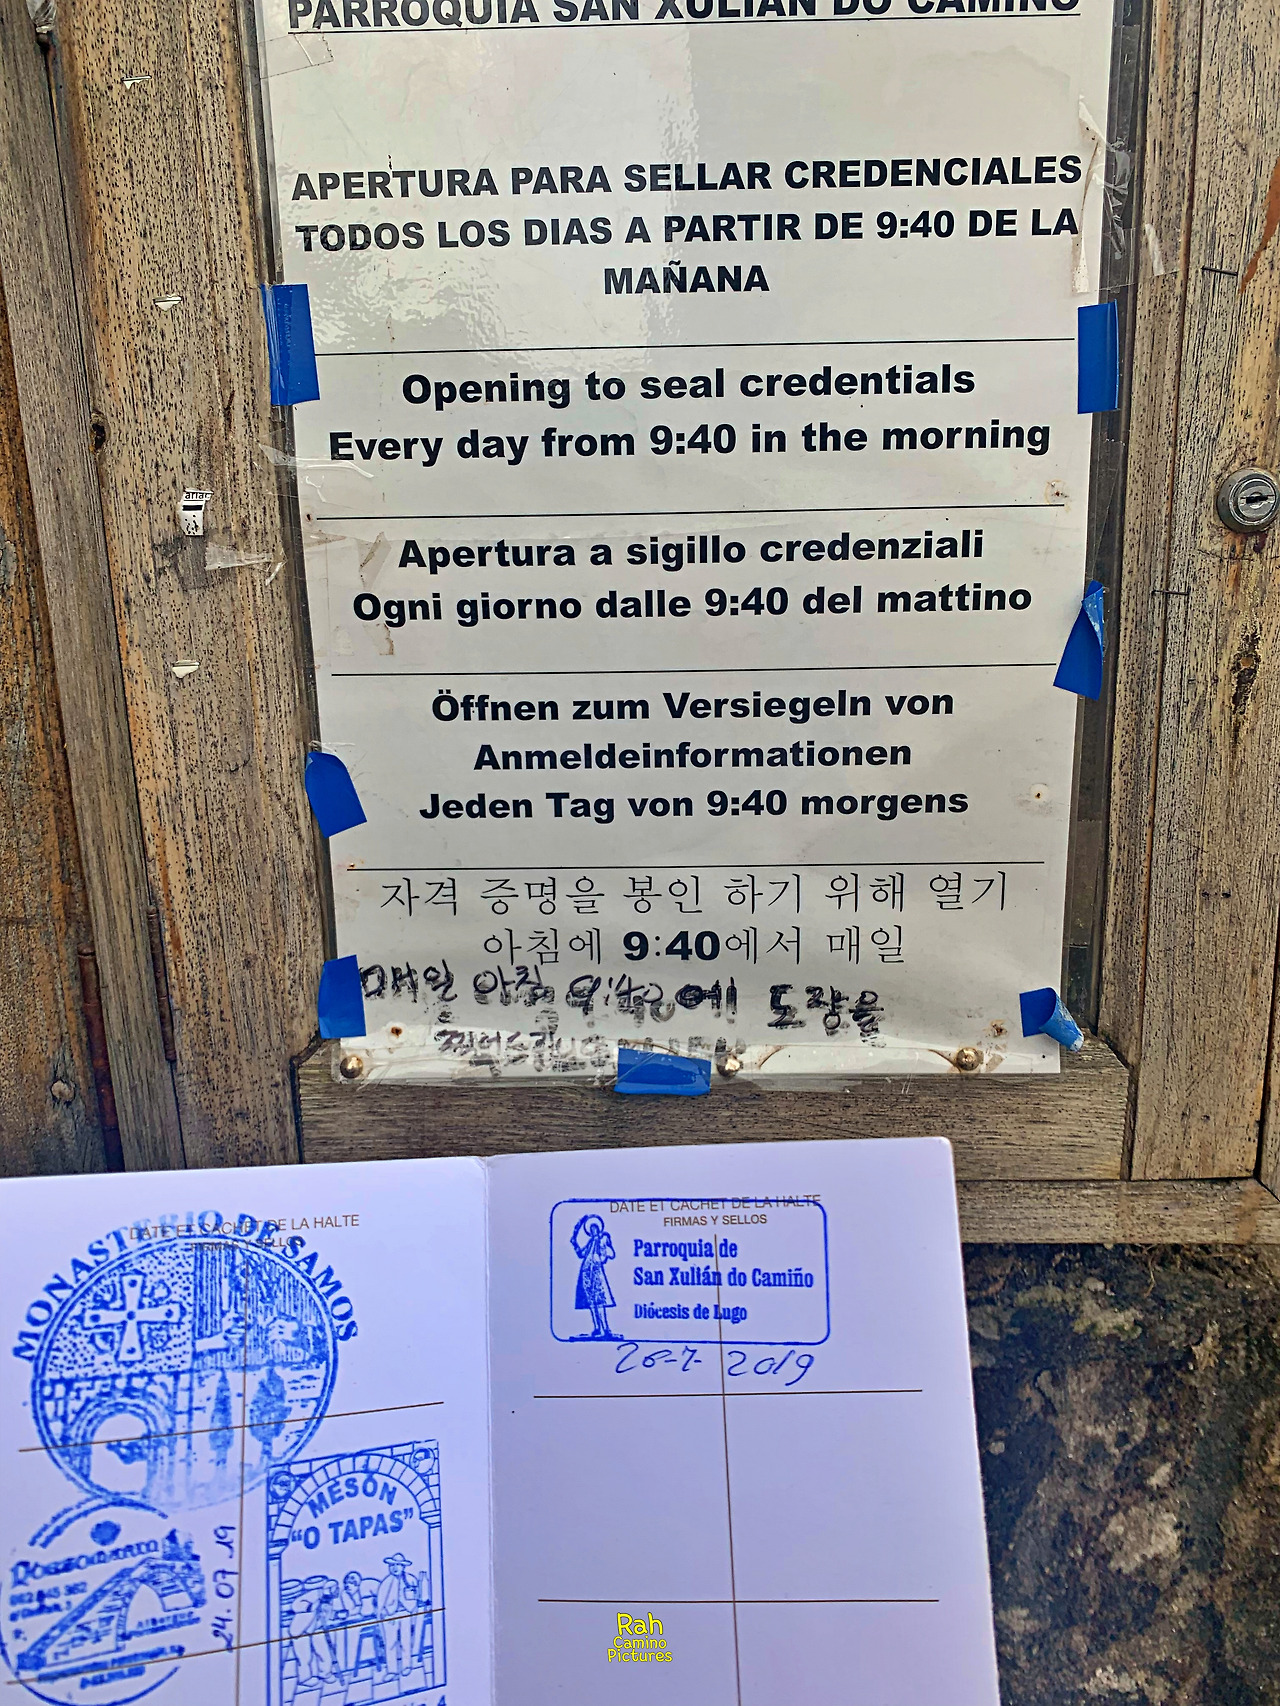 PARROQUIA SAN XULIAN DO CAMIÑO
APERTURA PARA SELLAR CREDENCIALES
TODOS LOS DIAS A PARTIR DE 9:40 DE LA
MAÑANA
Opening to seal credentials
Every day from 9:40 in the morning
Apertura a sigillo credenziali
Ogni giorno dalle 9:40 del mattino
Öffnen zum Versiegeln von
Anmeldeinformationen
Jeden Tag von 9:40 morgens
자격 증명을 봉인 하기 위해 열기
아침에 9:40에서 매일
매일 아침 9:40에 도장을
DATE ET CACHET DE LA HALTE
MONASTERIO DE SAMOS
24.07.19
MESÓN
"O TAPAS"
DATE ET CACHET DE LA HALTE
FIRMAS Y SELLOS
Parroquia de
San Xulián do Camiño
Diócesis de Lugo
26-7-2019
Rah
Camino
Pictures